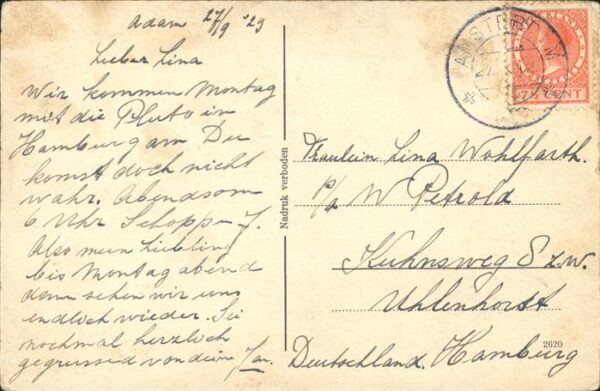 Adam 27/9 '29
Lieber Lina
Wir kommen Montag
mit die Pluto in
Hamburg am Du
komst doch nicht
wahr. Abends om
6 Uhr Schoppe
Also mein Liebling
bis Montag abend
dann sehen wir uns
endloch wieder. Sei
nochmal herzloch
gegrüssed von dein Jan.
Nadruk verboden
AMSTERDAM
CENT
Fraulein Lina Wohlfarth.
p/a W Petrold
Kuhnsweg 8 z.w.
Uhlenhorst
Deutschland. Hamburg
2620